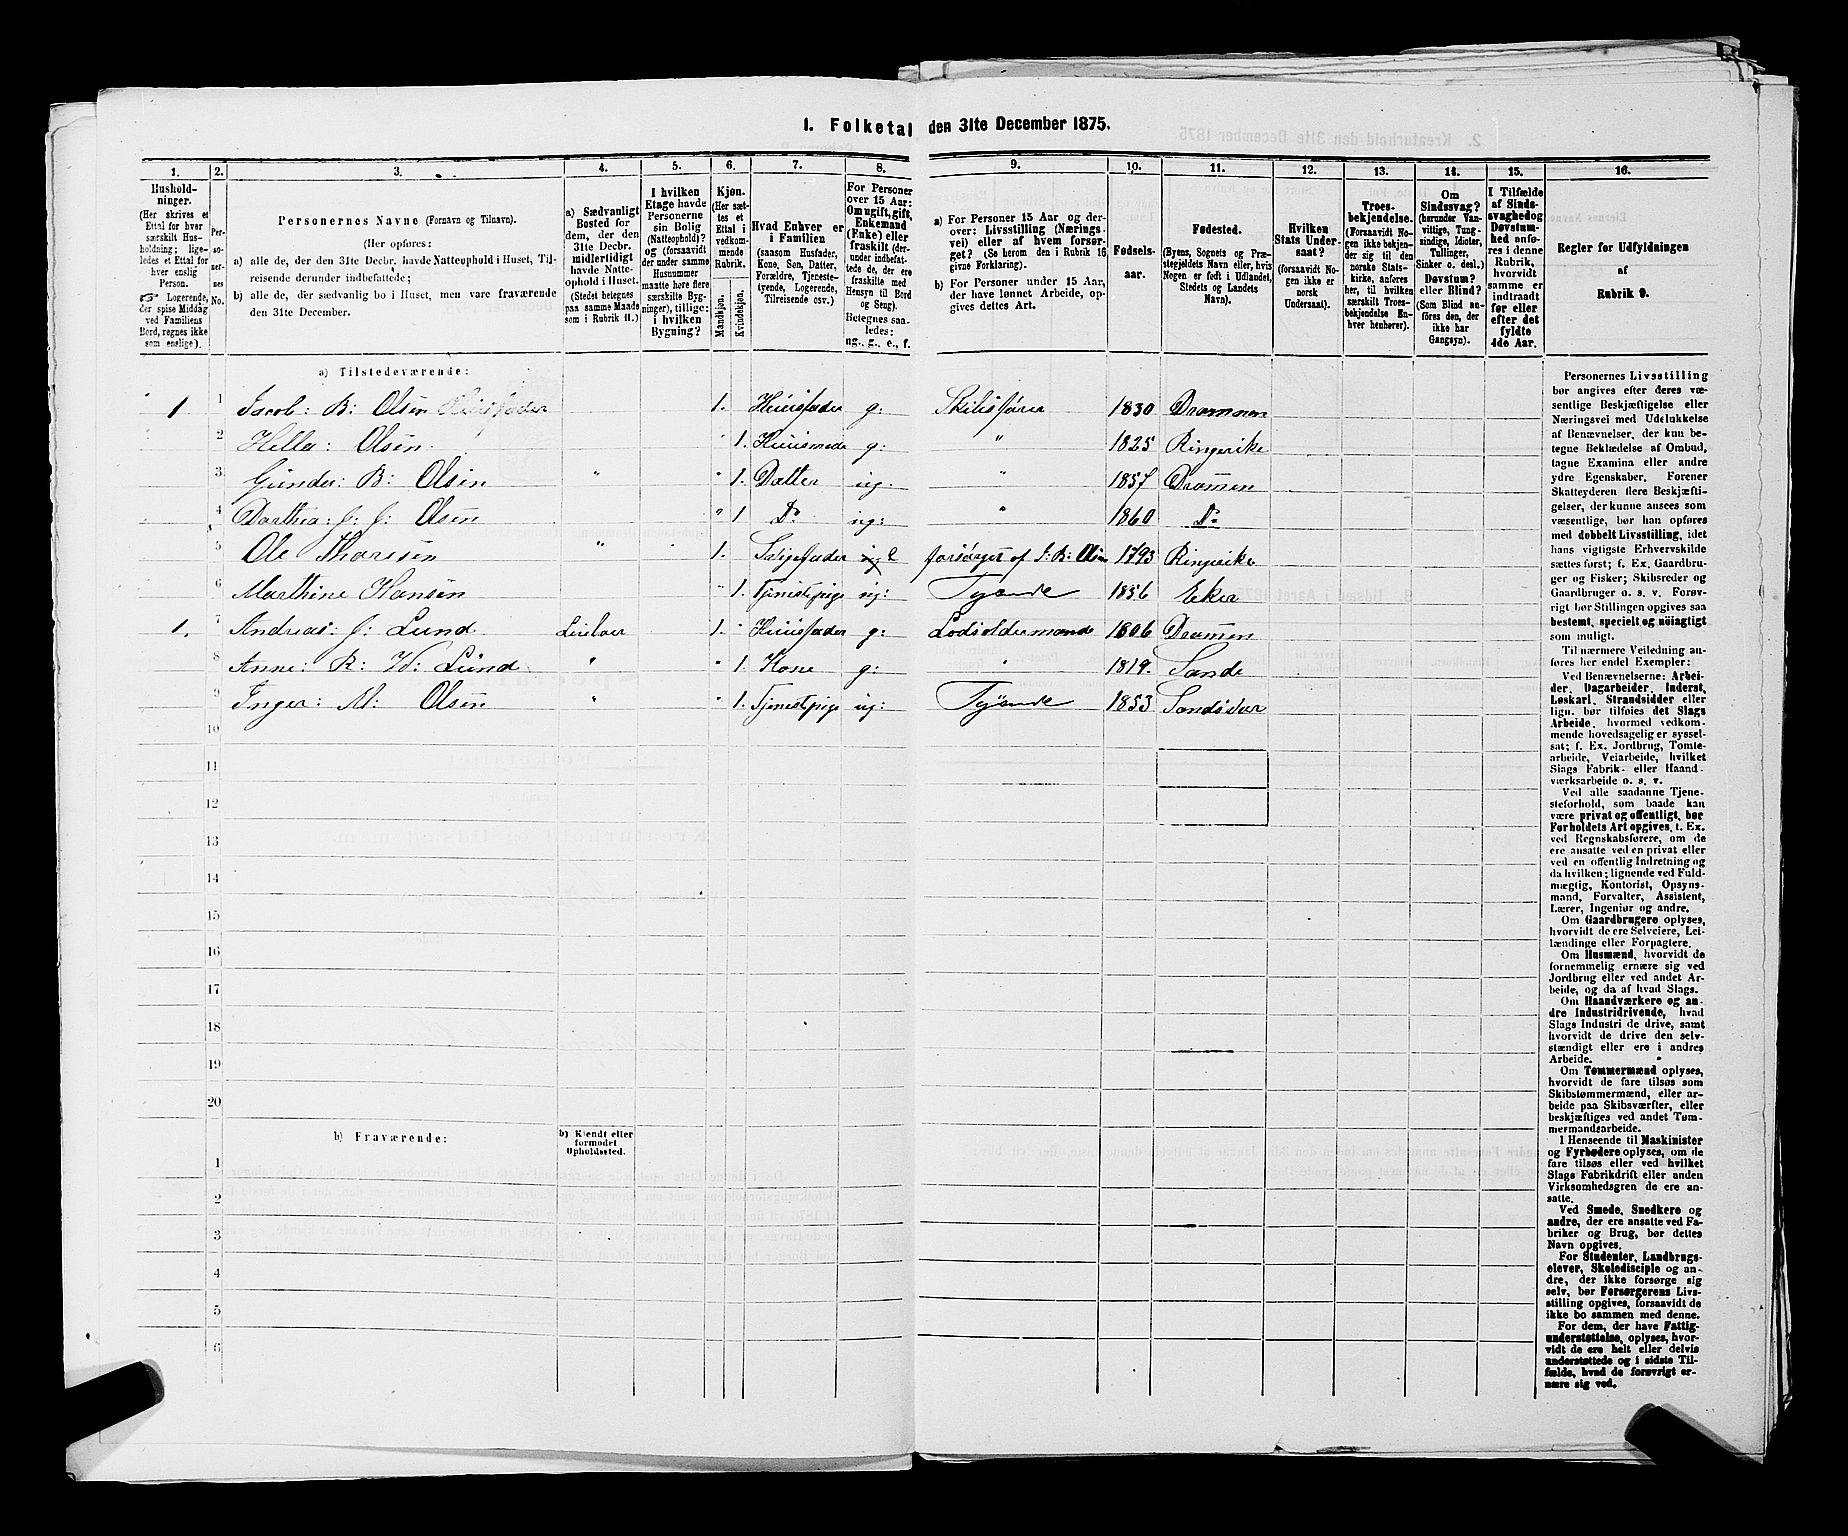 1. Folketal den 31te December 1875.
1.
2.
3.
4.
5.
6.
7.
8.
9.
10.
11.
12.
13.
14.
15.
16.
Hushold-
ninger.
(Her skrives et
Ettal for hver
særskilt Hus-
holdning; lige-
ledes et Ettal for
hver enslig
Person.
☞ Logerende,
der spise Middag
ved Familiens
Bord, regnes ikke
som enslige).
Per-
so-
ner-
nes
No.
Personernes Navne (Fornavn og Tilnavn).
(Her opføres:
a) alle de, der den 31te Decbr. havde Natteophold i Huset, Til-
reisende derunder indbefattede;
b) alle de, der sædvanlig bo i Huset, men vare fraværende
den 31te December.
a) Sædvanligt
Bosted for
dem, der den
31te Decbr.
midlertidigt
havde Natte-
ophold i Huset.
(Stedet betegnes
paa samme Maade
som i Rubrik 11.)
I hvilken
Etage havde
Personerne
sin Bolig
(Natteophold)?
og (forsaavidt
der under samme
Husnummer
maatte høre flere
særskilte Byg-
ninger), tillige:
i hvilken
Bygning?
Kjøn.
(Her sæt-
tes et
Ettal i
vedkom-
mende
Rubrik.
Mandkjøn.
Kvindekjøn.
Hvad Enhver er
i Familien
(saasom Husfader,
Kone, Søn, Datter,
Forældre, Tjeneste-
tyende, Logerende,
Tilreisende osv.)
For Personer
over 15 Aar:
Om ugift, gift,
Enkemand
(Enke) eller
fraskilt (der-
under indbefat-
tede de, der ere
fraskilte med
Hensyn til Bord
og Seng).
Betegnes saa-
ledes:
ug., g., e., f.
a) For Personer 15 Aar og der-
over: Livsstilling (Nærings-
vei) eller af hvem forsør-
get? (Se herom den i Rubrik 16
givne Forklaring).
b) For Personer under 15 Aar,
der have lønnet Arbeide, op-
gives dettes Art.
Fødsels-
aar.
Fødested.
(Byens, Sognets og Præ-
stegjeldets Navn eller, hvis
Nogen er født i Udlandet,
Stedets og Landets
Navn).
Hvilken
Stats Under-
saat?
(forsaavidt No-
gen ikke er
norsk
Undersaat).
Troes-
bekjendelse.
(Forsaavidt No-
gen ikke bekjen-
der sig til den
norske Stats-
kirke, anføres
her, til hvilken
særskilt Troes-
bekjendelse En-
hver henhører).
Om
Sindssvag?
(herunder Van-
vittige, Tung-
sindige, Idioter,
Tullinger,
Sinker o. desl.)
Døvstum?
eller Blind?
(Som Blind an-
føres den, der
ikke har
Gangsyn).
I Tilfælde
af Sinds-
svaghed og
Døvstum-
hed anfø-
res i denne
Rubrik,
hvorvidt
samme er
indtraadt
før eller
efter det
fyldte
4de Aar.
Regler for Udfyldningen
af
Rubrik 9.
a) Tilstedeværende:
1 1 Jacob: B: Olsen Huusfader 1. Huusfader g: 1830 Drammen
2 Olsen " 1. g: " 1825 Ringerike
3 Gunder: B: Olsen " " 1. Datter ug. " 1857 Dramen
4 Dorthea: J: J: Olsen " 1 Do ug: " 1860 Do
5 Ole Thoresen " 1. forsørges af J: B: Olsen 1793 Ringerike
6 Marthine Hansen " 1. Tjenestpige ug: Tyende 1856 Eker
1. 7 Andreas: J: Lund 1. " Huusfader g: Lodsoldermand 1806 Dramen
8 Anne: R: W: Lund " " 1. Kone g: " 1819. Sande
9 Inger: M: Olsen " " 1. Tjenestpige ug: Tyende 1853
10
11
12
13
14
15
16
17
18
19
20
b) Fraværende:
b) Kjendt eller
formodet
Opholdssted.
1
2
3
4
5
6
Personernes Livsstilling
bør angives efter deres væ-
sentlige Beskjæftigelse eller
Næringsvei med Udelukkelse
af Benævnelser, der kun be-
tegne Beklædelse af Ombud,
tagne Examina eller andre
ydre Egenskaber. Forener
Skatteyderen flere Beskjæfti-
gelser, der kunne ansees som
væsentlige, bør han opføres
med dobbelt Livsstilling, idet
hans vigtigste Erhvervskilde
sættes først; f. Ex. Gaardbru-
ger og Fisker; Skibsreder og
Gaardbruger o. s. v. Forøv-
rigt bør Stillingen opgives saa
bestemt, specielt og nöiagtigt
som muligt.
Til nærmere Veiledning an-
føres her endel Exempler:
Ved Benævnelserne: Arbei-
der, Dagarbeider, Inderst,
Løskarl, Strandsidder eller
lign. bør tilføies det Slags
Arbeide, hvormed vedkom-
mende hovedsagelig er syssel-
sat; f. Ex. Jordbrug, Tomte-
arbeide, Veiarbeide, hvilket
Slags Fabrik- eller Haand-
værksarbeide o. s. v.
Ved alle saadanne Tjene-
steforhold, som baade kan
være privat og offentligt, bør
Forholdets Art opgives, t. Ex.
ved Regnskabsførere, om de
ere ansatte ved en privat eller
ved en offentlig Indretning og
da hvilken; lignende ved Fuld-
mægtig, Kontorist, Opsyns-
mand, Forvalter, Assistent,
Lærer, Ingeniør og andre.
Om Gaardbrugere oplyses,
hvorvidt de ere Selveiere, Lei-
lændinge eller Forpagtere.
Om Husmænd, hvorvidt de
fornemmelig ernære sig ved
Jordbrug eller ved andet Ar-
beide, og da af hvad Slags.
Om Haandværkere og an-
dre Industridrivende, hvad
Slags Industri de drive, samt
hvorvidt de drive den selv-
stændigt eller ere i andres
Arbeide.
Om Tømmermænd oplyses,
hvorvidt de fare tilsøs som
Skibstømmermænd, eller ar-
beide paa Skibsværfter, eller
beskjæftiges ved andet Tøm-
mermandsarbeide.
I Henseende til Maskinister
og Fyrbødere oplyses, om de
fare tilsøs eller ved hvilket
Slags Fabrikdrift eller anden
Virksomhedsgren de ere an-
satte.
Ved Smede, Snedkere og
andre, der ere ansatte ved Fa-
briker og Brug, bør dettes
Navn opgives.
For Studenter, Landbrugs-
elever, Skoledisciple og an-
dre, der ikke forsørge sig
selv, bør Forsørgerens Livs-
stilling opgives, forsaavidt de
ikke bo sammen med denne.
For dem, der have Fattig-
understøttelse, oplyses, hvor-
vidt de ere helt eller delvis
understøttede og i sidste Til-
fælde, hvad de forøvrigt er-
nære sig ved.